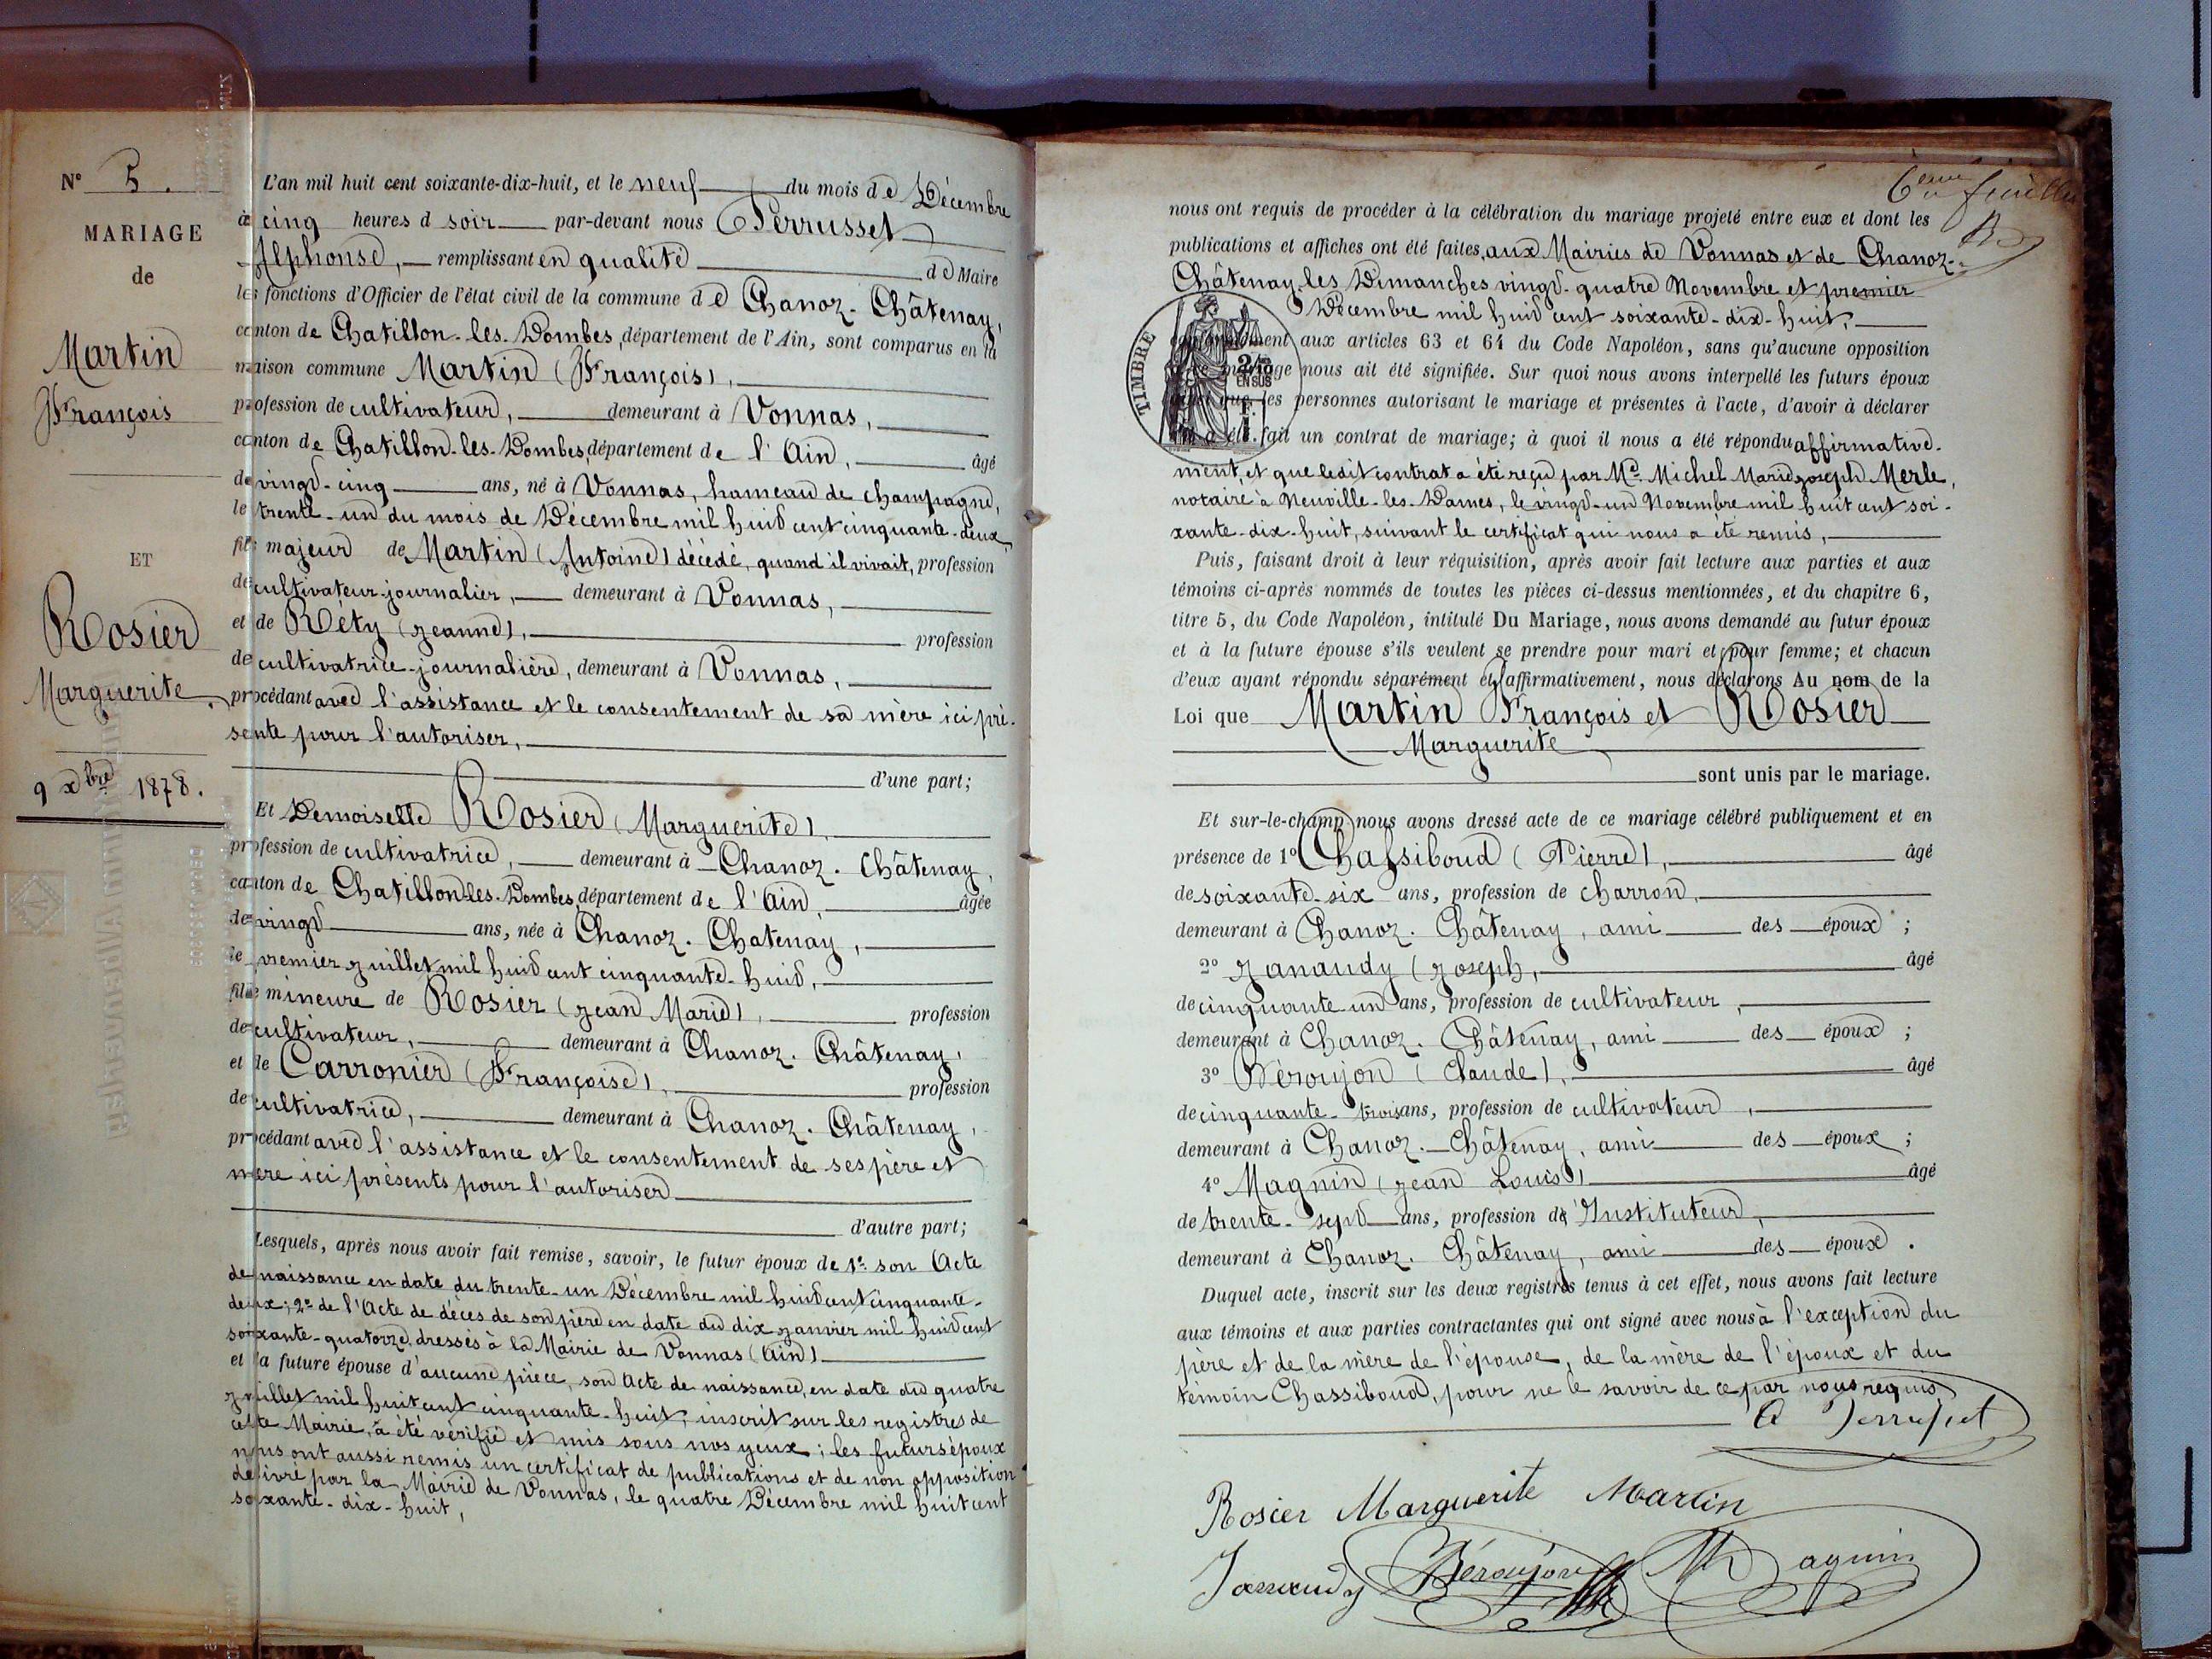 N° 5.
MARIAGE
de
Martin
François
ET
Rosier
Marguerite
9 xbre 1878.
L'an mil huit cent soixante-dix-huit, et le neuf du mois de Décembre
à cinq heures d soir par-devant nous Perrusset
Alphonse, remplissant en qualité de Maire
les fonctions d'Officier de l'état civil de la commune de Chanoz-Châtenay,
canton de Chatillon-les-Dombes, département de l'Ain, sont comparus en la
maison commune Martin (François),
profession de cultivateur, demeurant à Vonnas,
canton de Chatillon-les-Dombes, département de l'Ain, âgé
de vingt-cinq ans, né à Vonnas, hameau de Champagne,
le trente-un du mois de Décembre mil huit cent cinquante-deux,
fils majeur de Martin (Antoine) décédé, quand il vivait, profession
de cultivateur-journalier, demeurant à Vonnas,
et de Réty (Jeanne), profession
de cultivatrice-journalière, demeurant à Vonnas,
procédant avec l'assistance et le consentement de sa mère ici pré-
sente pour l'autoriser,
d'une part;
Et Demoiselle Rosier (Marguerite),
profession de cultivatrice, demeurant à Chanoz-Châtenay,
canton de Chatillon-les-Dombes, département de l'Ain, âgée
de vingt ans, née à Chanoz-Chatenay,
le premier Juillet mil huit cent cinquante-huit,
fille mineure de Rosier (Jean Marie), profession
de cultivateur, demeurant à Chanoz-Châtenay,
et de Carronier (Françoise), profession
de cultivatrice, demeurant à Chanoz-Châtenay,
procédant avec l'assistance et le consentement de ses père et
mère ici présents pour l'autoriser
d'autre part;
Lesquels, après nous avoir fait remise, savoir, le futur époux de 1° son Acte
de naissance en date du trente-un Décembre mil huit cent cinquante-
deux; 2° de l'Acte de décès de son père en date du dix Janvier mil huit cent
soixante-quatorze, dressés à la Mairie de Vonnas (Ain)
et la future épouse d'aucune pièce, son Acte de naissance, en date du quatre
Juillet mil huit cent cinquante-huit, inscrit sur les registres de
cette Mairie, a été vérifié et mis sous nos yeux; les futurs époux
nous ont aussi remis un certificat de publications et de non opposition
délivré par la Mairie de Vonnas, le quatre Décembre mil huit cent
soixante-dix-huit,
6eme feuillet
nous ont requis de procéder à la célébration du mariage projeté entre eux et dont les
publications et affiches ont été faites, aux Mairies de Vonnas et de Chanoz-
Châtenay les Dimanches vingt-quatre Novembre et premier
Décembre mil huit cent soixante-dix-huit,
TIMBRE
2/10
EN SUS
conformément aux articles 63 et 64 du Code Napoléon, sans qu'aucune opposition
à ce mariage nous ait été signifiée. Sur quoi nous avons interpellé les futurs époux
ainsi que les personnes autorisant le mariage et présentes à l'acte, d'avoir à déclarer
s'il a été fait un contrat de mariage; à quoi il nous a été répondu affirmative-
ment, et que ledit contrat a été reçu par Me Michel Marie Joseph Merle,
notaire à Neuville-les-Dames, le vingt-un Novembre mil huit cent soi-
xante-dix-huit, suivant le certificat qui nous a été remis,
Puis, faisant droit à leur réquisition, après avoir fait lecture aux parties et aux
témoins ci-après nommés de toutes les pièces ci-dessus mentionnées, et du chapitre 6,
titre 5, du Code Napoléon, intitulé Du Mariage, nous avons demandé au futur époux
et à la future épouse s'ils veulent se prendre pour mari et pour femme; et chacun
d'eux ayant répondu séparément et affirmativement, nous déclarons Au nom de la
Loi que Martin François et Rosier
Marguerite
sont unis par le mariage.
Et sur-le-champ nous avons dressé acte de ce mariage célébré publiquement et en
présence de 1° Chassiboud (Pierre), âgé
de soixante-six ans, profession de charron,
demeurant à Chanoz-Châtenay, ami des époux;
2° Janaudy (Joseph, âgé
de cinquante-un ans, profession de cultivateur,
demeurant à Chanoz-Châtenay, ami des époux;
3° Béroujon (Claude), âgé
de cinquante-trois ans, profession de cultivateur,
demeurant à Chanoz-Châtenay, ami des époux;
4° Magnin (Jean Louis) âgé
de trente-sept ans, profession d'Instituteur,
demeurant à Chanoz-Châtenay, ami des époux.
Duquel acte, inscrit sur les deux registres tenus à cet effet, nous avons fait lecture
aux témoins et aux parties contractantes qui ont signé avec nous à l'exception du
père et de la mère de l'épouse, de la mère de l'époux et du
témoin Chassiboud, pour ne le savoir de ce par nous requis
A Perrusset
Rosier Marguerite Martin
Janaudy Béroujon Magnin